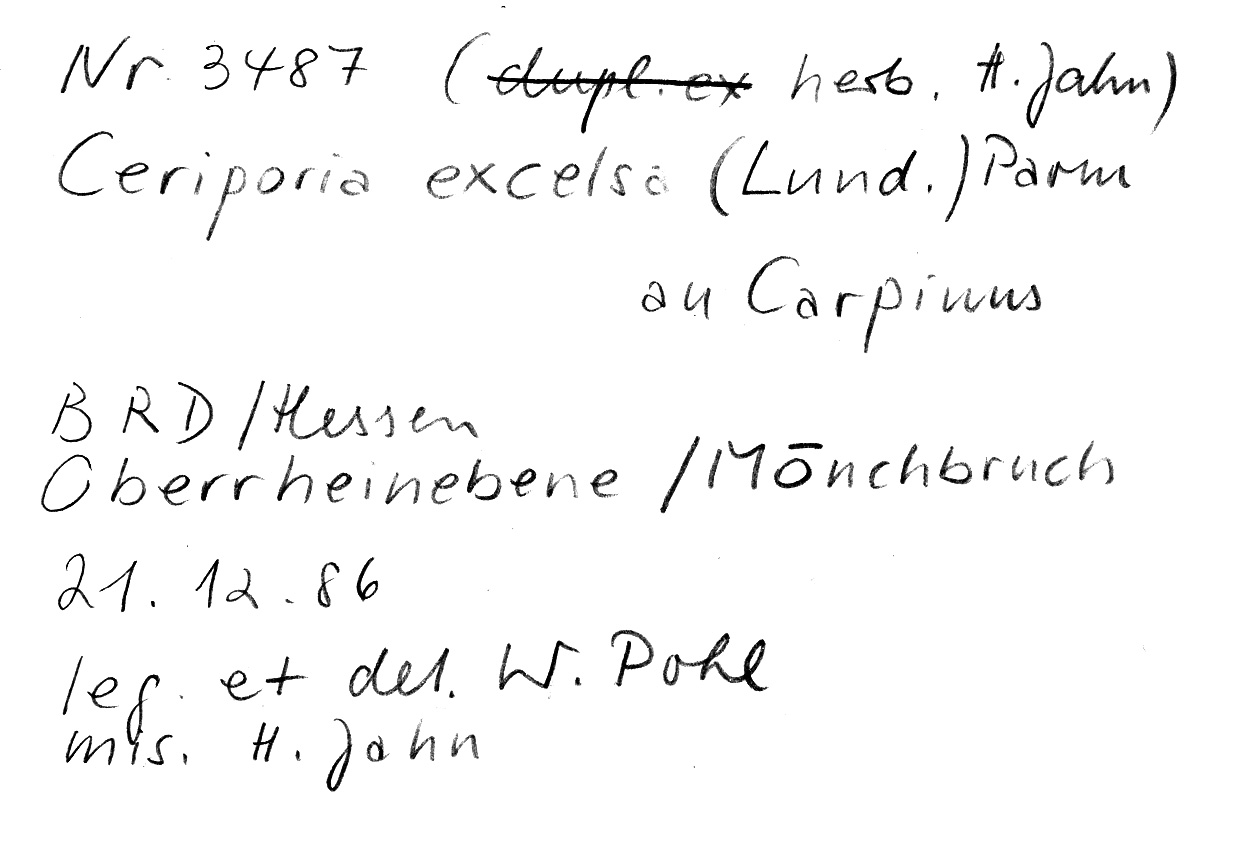 Nr. 3487 (dupl. ex herb. H. Jahn)
Ceriporia excelsa (Lund.) Parm
an Carpinus
BRD/Hessen
Oberrheinebene/Mönchbruch
21.12.86
leg. et det. W. Pohl
mis. H. Jahn